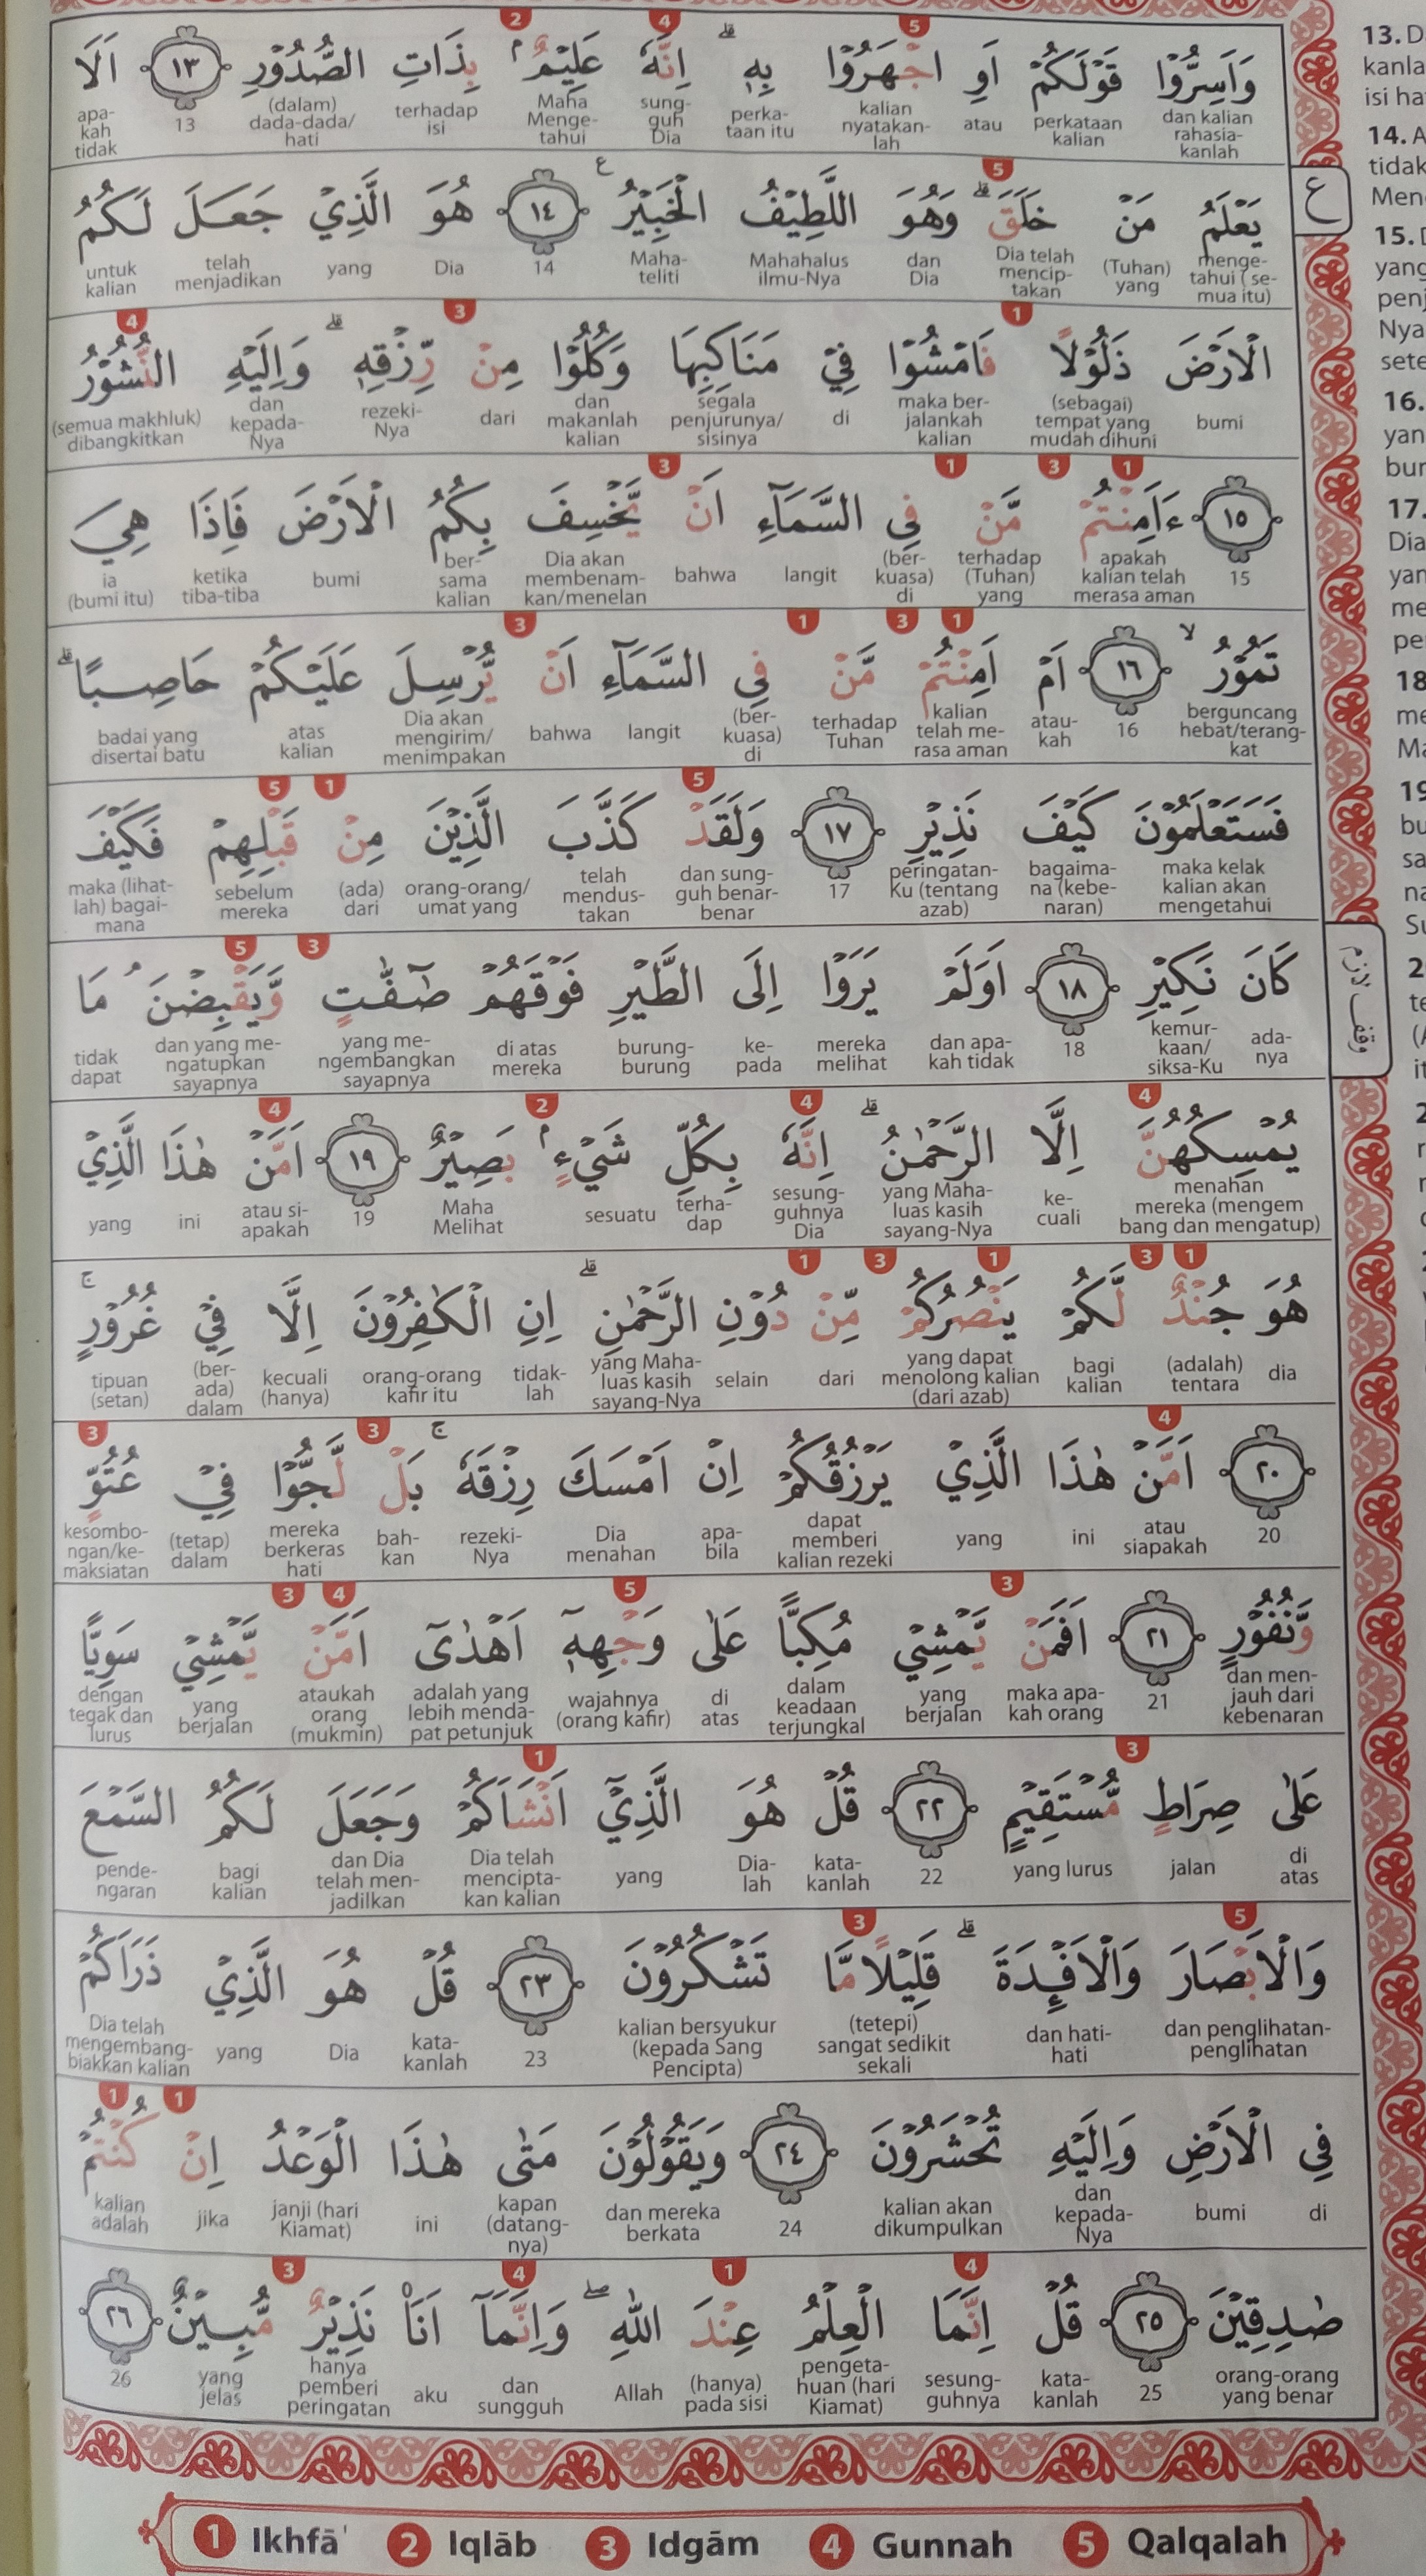 وَاَسِرُّوْا قَوْلَكُمْ اَوِ اجْهَرُوْا بِهٖ ۗ اِنَّهٗ عَلِيْمٌ ۢ بِذَاتِ الصُّدُوْرِ ١٣ اَلَا
dan kalian rahasia-kanlah perkataan kalian atau kalian nyatakan-lah perka-taan itu sung-guh Dia Maha Menge-tahui terhadap isi (dalam) dada-dada/hati 13 apa-kah tidak
يَعْلَمُ مَنْ خَلَقَ ۗ وَهُوَ اللَّطِيْفُ الْخَبِيْرُ ١٤ هُوَ الَّذِيْ جَعَلَ لَكُمُ
menge-tahui (se-mua itu) (Tuhan) yang Dia telah mencip-takan dan Dia Mahahalus ilmu-Nya Maha-teliti 14 Dia yang telah menjadikan untuk kalian
الْاَرْضَ ذَلُوْلًا فَامْشُوْا فِيْ مَنَاكِبِهَا وَكُلُوْا مِنْ رِّزْقِهٖ ۗ وَاِلَيْهِ النُّشُوْرُ
bumi (sebagai) tempat yang mudah dihuni maka ber-jalankah kalian di segala penjurunya/sisinya dan makanlah kalian dari rezeki-Nya dan kepada-Nya (semua makhluk) dibangkitkan
١٥ ءَاَمِنْتُمْ مَّنْ فِى السَّمَاۤءِ اَنْ يَّخْسِفَ بِكُمُ الْاَرْضَ فَاِذَا هِيَ
15 apakah kalian telah merasa aman terhadap (Tuhan) yang (ber-kuasa) di langit bahwa Dia akan membenam-kan/menelan ber-sama kalian bumi ketika tiba-tiba ia (bumi itu)
تَمُوْرُ ۙ ١٦ اَمْ اَمِنْتُمْ مَّنْ فِى السَّمَاۤءِ اَنْ يُّرْسِلَ عَلَيْكُمْ حَاصِبًا ۗ
berguncang hebat/terang-kat 16 atau-kah kalian telah me-rasa aman terhadap Tuhan (ber-kuasa) di langit bahwa Dia akan mengirim/menimpakan atas kalian badai yang disertai batu
فَسَتَعْلَمُوْنَ كَيْفَ نَذِيْرِ ١٧ وَلَقَدْ كَذَّبَ الَّذِيْنَ مِنْ قَبْلِهِمْ فَكَيْفَ
maka kelak kalian akan mengetahui bagaima-na (kebe-naran) peringatan-Ku (tentang azab) 17 dan sung-guh benar-benar telah mendus-takan orang-orang/umat yang (ada) dari sebelum mereka maka (lihat-lah) bagai-mana
كَانَ نَكِيْرِ ١٨ اَوَلَمْ يَرَوْا اِلَى الطَّيْرِ فَوْقَهُمْ صٰۤفّٰتٍ وَّيَقْبِضْنَ ۘ مَا
ada-nya kemur-kaan/siksa-Ku 18 dan apa-kah tidak mereka melihat ke-pada burung-burung di atas mereka yang me-ngembangkan sayapnya dan yang me-ngatupkan sayapnya tidak dapat
يُمْسِكُهُنَّ اِلَّا الرَّحْمٰنُ ۗ اِنَّهٗ بِكُلِّ شَيْءٍ ۢ بَصِيْرٌ ١٩ اَمَّنْ هٰذَا الَّذِيْ
menahan mereka (mengem bang dan mengatup) ke-cuali yang Maha-luas kasih sayang-Nya sesung-guhnya Dia terha-dap sesuatu Maha Melihat 19 atau si-apakah ini yang
هُوَ جُنْدٌ لَّكُمْ يَنْصُرُكُمْ مِّنْ دُوْنِ الرَّحْمٰنِ ۗ اِنِ الْكٰفِرُوْنَ اِلَّا فِيْ غُرُوْرٍ ۚ
dia (adalah) tentara bagi kalian yang dapat menolong kalian (dari azab) dari selain yang Maha-luas kasih sayang-Nya tidak-lah orang-orang kafir itu kecuali (hanya) (ber-ada) dalam tipuan (setan)
٢٠ اَمَّنْ هٰذَا الَّذِيْ يَرْزُقُكُمْ اِنْ اَمْسَكَ رِزْقَهٗ ۚ بَلْ لَّجُّوْا فِيْ عُتُوٍّ
20 atau siapakah ini yang dapat memberi kalian rezeki apa-bila Dia menahan rezeki-Nya bah-kan mereka berkeras hati (tetap) dalam kesombo-ngan/ke-maksiatan
وَّنُفُوْرٍ ٢١ اَفَمَنْ يَّمْشِيْ مُكِبًّا عَلٰى وَجْهِهٖٓ اَهْدٰىٓ اَمَّنْ يَّمْشِيْ سَوِيًّا
dan men-jauh dari kebenaran 21 maka apa-kah orang yang berjalan dalam keadaan terjungkal di atas wajahnya (orang kafir) adalah yang lebih menda-pat petunjuk ataukah orang (mukmin) yang berjalan dengan tegak dan lurus
عَلٰى صِرَاطٍ مُّسْتَقِيْمٍ ٢٢ قُلْ هُوَ الَّذِيْٓ اَنْشَاَكُمْ وَجَعَلَ لَكُمُ السَّمْعَ
di atas jalan yang lurus 22 kata-kanlah Dia-lah yang Dia telah mencipta-kan kalian dan Dia telah men-jadilkan bagi kalian pende-ngaran
وَالْاَبْصَارَ وَالْاَفْـِٕدَةَ ۗ قَلِيْلًا مَّا تَشْكُرُوْنَ ٢٣ قُلْ هُوَ الَّذِيْ ذَرَاَكُمْ
dan penglihatan-penglihatan dan hati-hati (tetepi) sangat sedikit sekali kalian bersyukur (kepada Sang Pencipta) 23 kata-kanlah Dia yang Dia telah mengembang-biakkan kalian
فِى الْاَرْضِ وَاِلَيْهِ تُحْشَرُوْنَ ٢٤ وَيَقُوْلُوْنَ مَتٰى هٰذَا الْوَعْدُ اِنْ كُنْتُمْ
di bumi dan kepada-Nya kalian akan dikumpulkan 24 dan mereka berkata kapan (datang-nya) ini janji (hari Kiamat) jika kalian adalah
صٰدِقِيْنَ ٢٥ قُلْ اِنَّمَا الْعِلْمُ عِنْدَ اللّٰهِ ۖ وَاِنَّمَآ اَنَا۠ نَذِيْرٌ مُّبِيْنٌ ٢٦
orang-orang yang benar 25 kata-kanlah sesung-guhnya pengeta-huan (hari Kiamat) (hanya) pada sisi Allah dan sungguh aku hanya pemberi peringatan yang jelas 26
ع
وقف لازم
1 Ikhfā' 2 Iqlāb 3 Idgām 4 Gunnah 5 Qalqalah